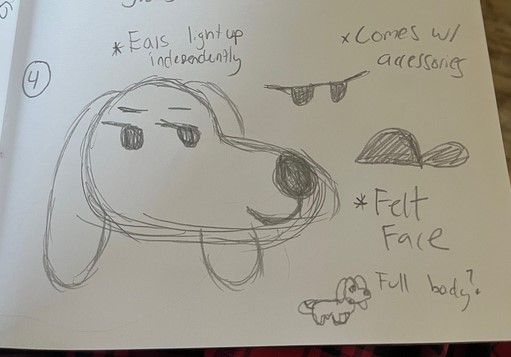 * Ears light up
independently
x Comes w/
accessories
4
* Felt
Face
Full body?